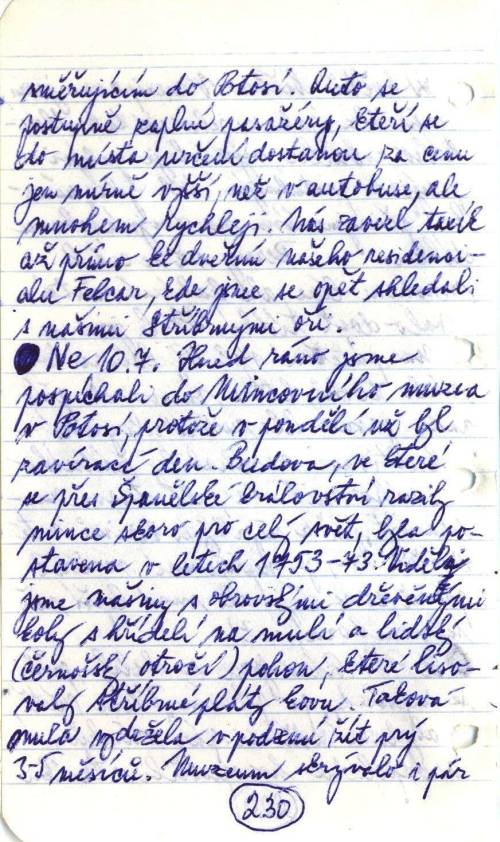 směřujícím do Potosí. Auto se
postupně zaplní pasažéry, kteří se
do místa určení dostanou za cenu
jen mírně vyšší, než v autobuse, ale
mnohem rychleji. Nás zavezl taxík
až přímo ke dveřím našeho residenci-
alu Felcar, kde jsme se opět shledali
s našimi stříbrnými oři.
Ne 10.7. Hned ráno jsme
pospíchali do Mincovního muzea
v Potosí, protože v pondělí už byl
zavírací den. Budova, ve které
se přes Španělské království razily
mince skoro pro celý svět, byla po-
stavena v letech 1753-73. Viděli
jsme mašiny s obrovskými dřevěnými
koly s hřídelí na mulí a lidský
(černošský otročí) pohon, které liso-
valy stříbrné pláty kovu. Taková
mula vydržela v podzemí žít prý
3-5 měsíců. Muzeum skrývalo i pár
230